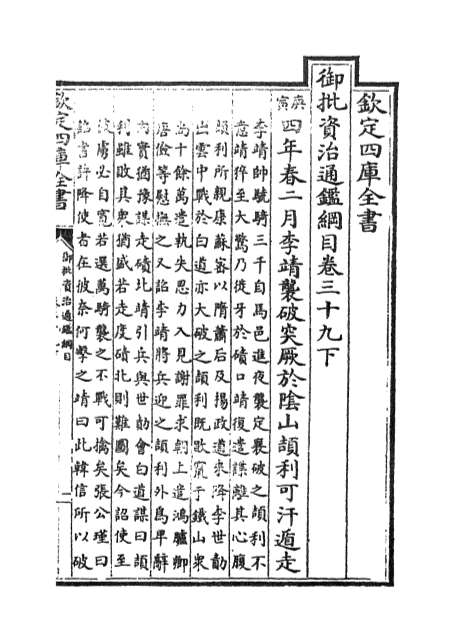 欽定四庫全書
御批資治通鑑綱目卷三十九下
庚寅
四年春二月李靖襲破突厥於陰山頡利可汗遁走
李靖帥驍騎三千自馬邑進夜襲定襄破之頡利不
意靖猝至大驚乃徙牙於磧口靖復遣諜離其心腹
頡利所親康蘇密以隋蕭后及楊政道來降李世勣
出雲中戰於白道亦大破之頡利既敗竄于鐵山衆
尚十餘萬遣執失思力入見謝罪求朝上遣鴻臚卿
唐儉等慰撫之又詔李靖將兵迎之頡利外爲卑辭
内實猶豫謀走磧北靖引兵與世勣會白道謀曰頡
利雖敗其衆猶盛若走度磧北則難圖矣今詔使至
彼虜必自寛若選萬騎襲之不戰可擒矣張公瑾曰
詔書許降使者在彼奈何擊之靖曰此韓信所以破
欽定四庫全書
御批資治通鑑綱目
一